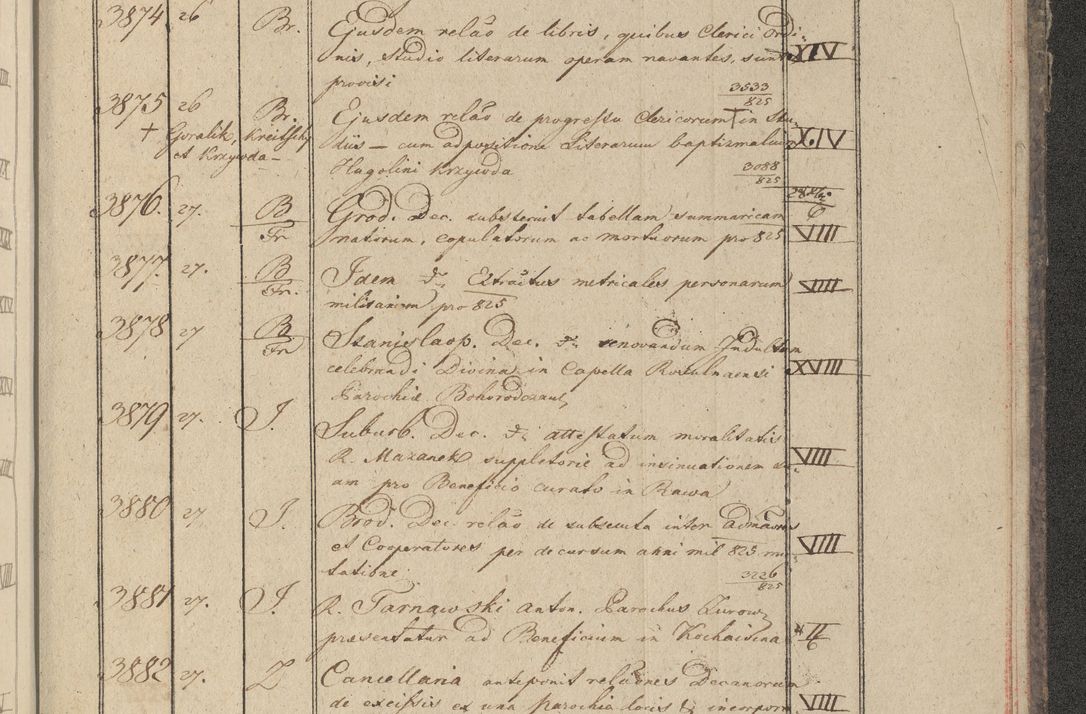 3874 26 Br. Ejusdem relão de libris, quibus Clerici Ordi
nis, studio literarum operam navantes, sunt XIV
provisi 3533/825
3875 26 Br. Ejusdem relão de progressu Clericorum † in stu
† Goralik, Kreitschy diis — cum adpositione Literarum baptizmalium XIV
et Krzywda — Hugolini Krzywda 3088/825
3876. 27. B/Fr Grod. Dec. substernit tabellam summariam
natorum, copulatorum ac mortuorum pro 825 VIIII
3877. 27. B/Fr. Idem Extractus metricales personarum VIIII
militarium pro 825
3878 27 B/Fr Stanislaop. Dec. renovandum Indultum
celebrandi Divina in Capella Rosulnaensi XVIII
Parochiæ Bohorodczan
3879 27. J. Suburb. Dec. attestatum moralitatis
R. Mazanek suppletorie ad insinuationem su VIIII
am pro Beneficio curato in Rawa
3880 27 J. Brod. Dec. relão de subsecuta inter
et Cooperatores per decursum anni mil 825 mu VIIII
tatione 3226/825
3881 27. J. R. Tarnawski Anton. Parochus Zurow
præsentatur ad Beneficium in Kochawina
3882 27. Z Cancellaria anteponit relaões Decanorum
de excissis ex una parochia locis & incorpor VIIII